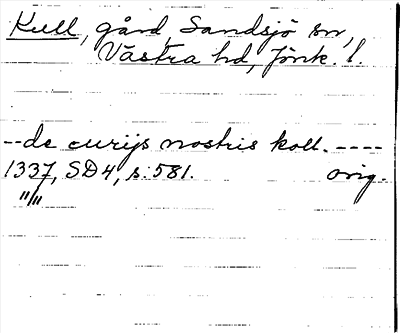 Kull, gård, Sandsjö sn,
Västra hd, Jönk. l.
--de curijs nostris koll. ----
1337, SD4, s. 581. orig.
11/11